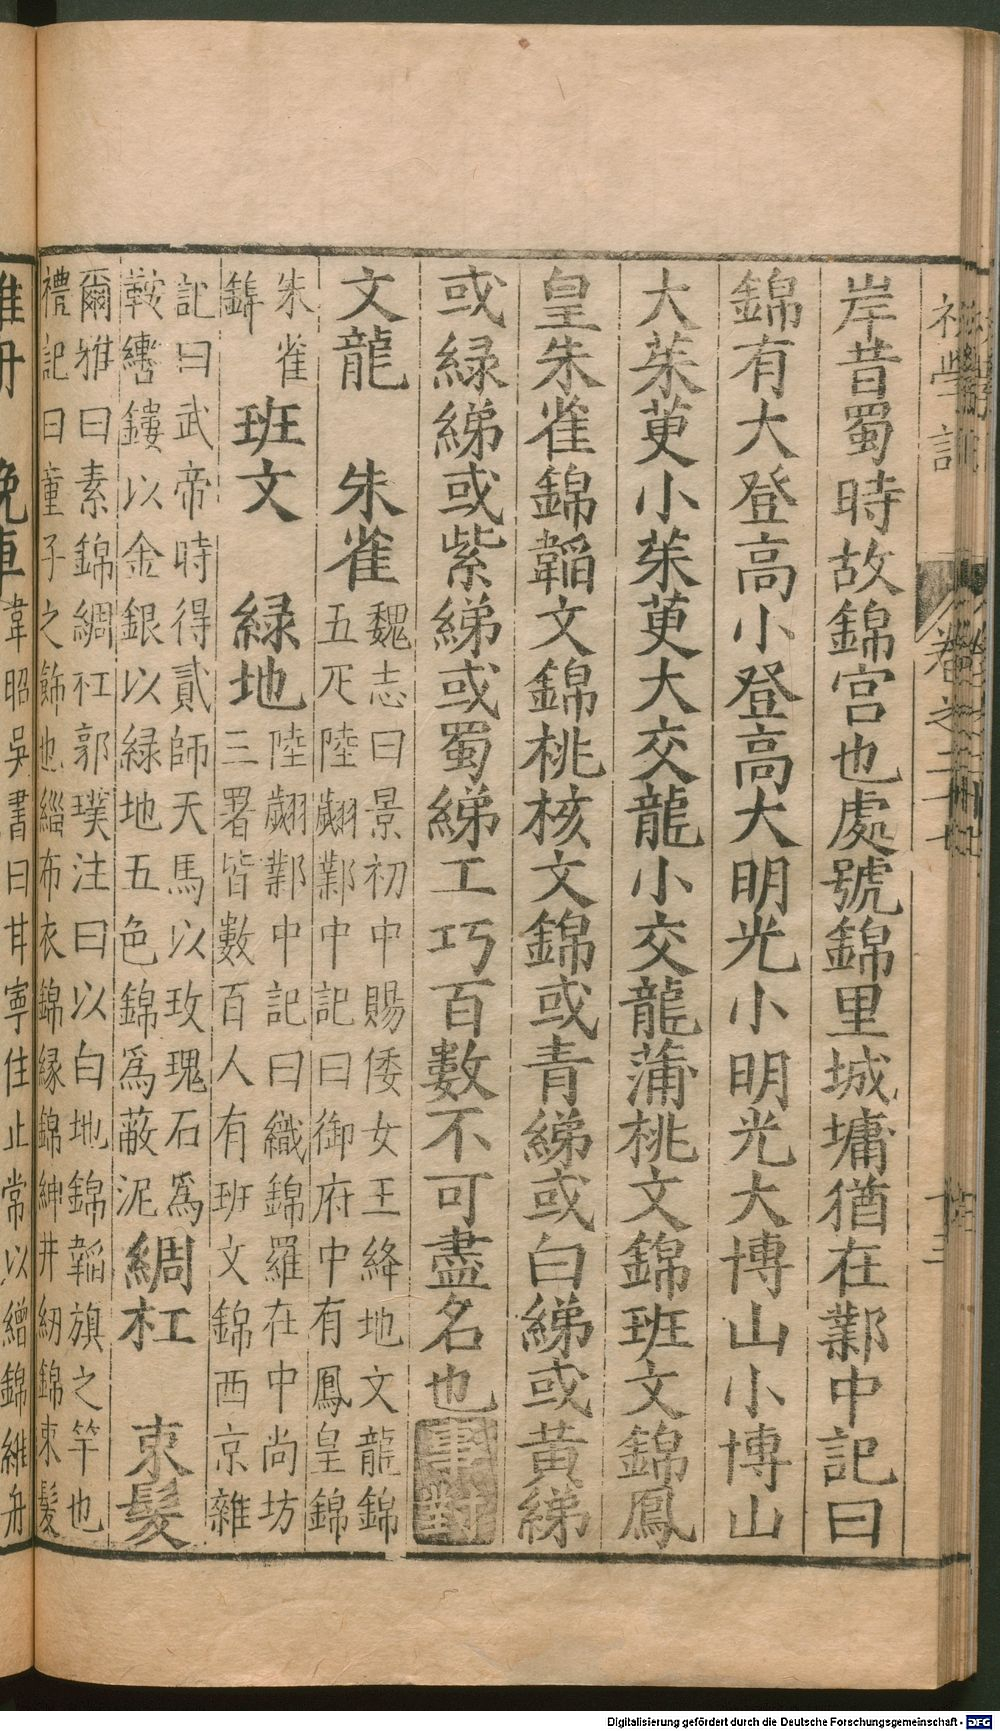 初學記 卷之二十七 十三
岸昔蜀時故錦宮也處號錦里城墉猶在鄴中記曰
錦有大登高小登高大明光小明光大博山小博山
大茱萸小茱萸大交龍小交龍蒲桃文錦班文錦鳳
皇朱雀錦韜文錦桃核文錦或青綈或白綈或黃綈
或緑綈或紫綈或蜀綈工巧百數不可盡名也事對
文龍 朱雀 魏志曰景初中賜倭女王絳地文龍錦
五疋陸翽鄴中記曰御府中有鳳皇錦
朱雀
錦 班文 緑地 陸翽鄴中記曰織錦羅在中尚坊
三署皆數百人有班文錦西京雜
記曰武帝時得貳師天馬以玫瑰石爲
鞍鏤以金銀以緑地五色錦爲蔽泥 綢杠 束髮
爾雅曰素錦綢杠郭璞注曰以白地錦韜旗之竿也
禮記曰童子之飾也緇布衣錦縁錦紳并紐錦束髮
維舟 挽車 韋昭吳書曰甘寧住止常以繒錦維舟
Digitalisierung gefördert durch die Deutsche Forschungsgemeinschaft - DFG